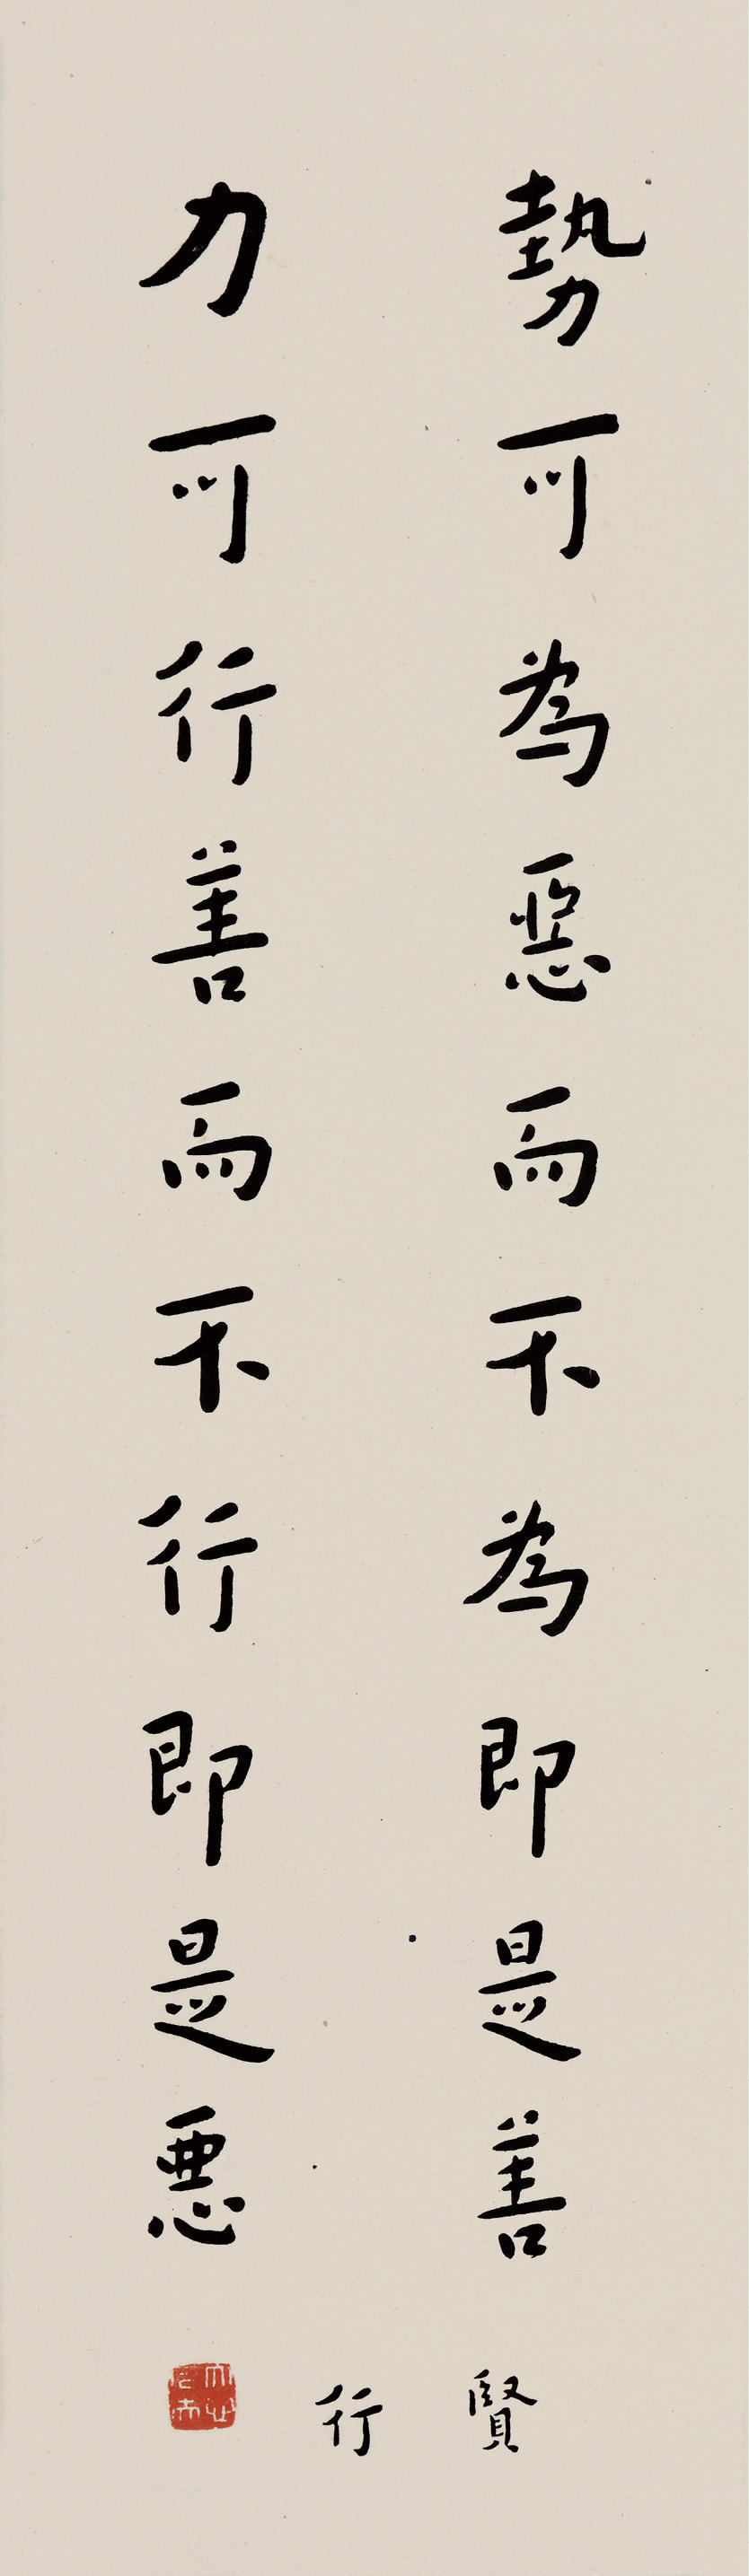 勢可為惡而不為即是善
力可行善而不行即是惡
賢
行